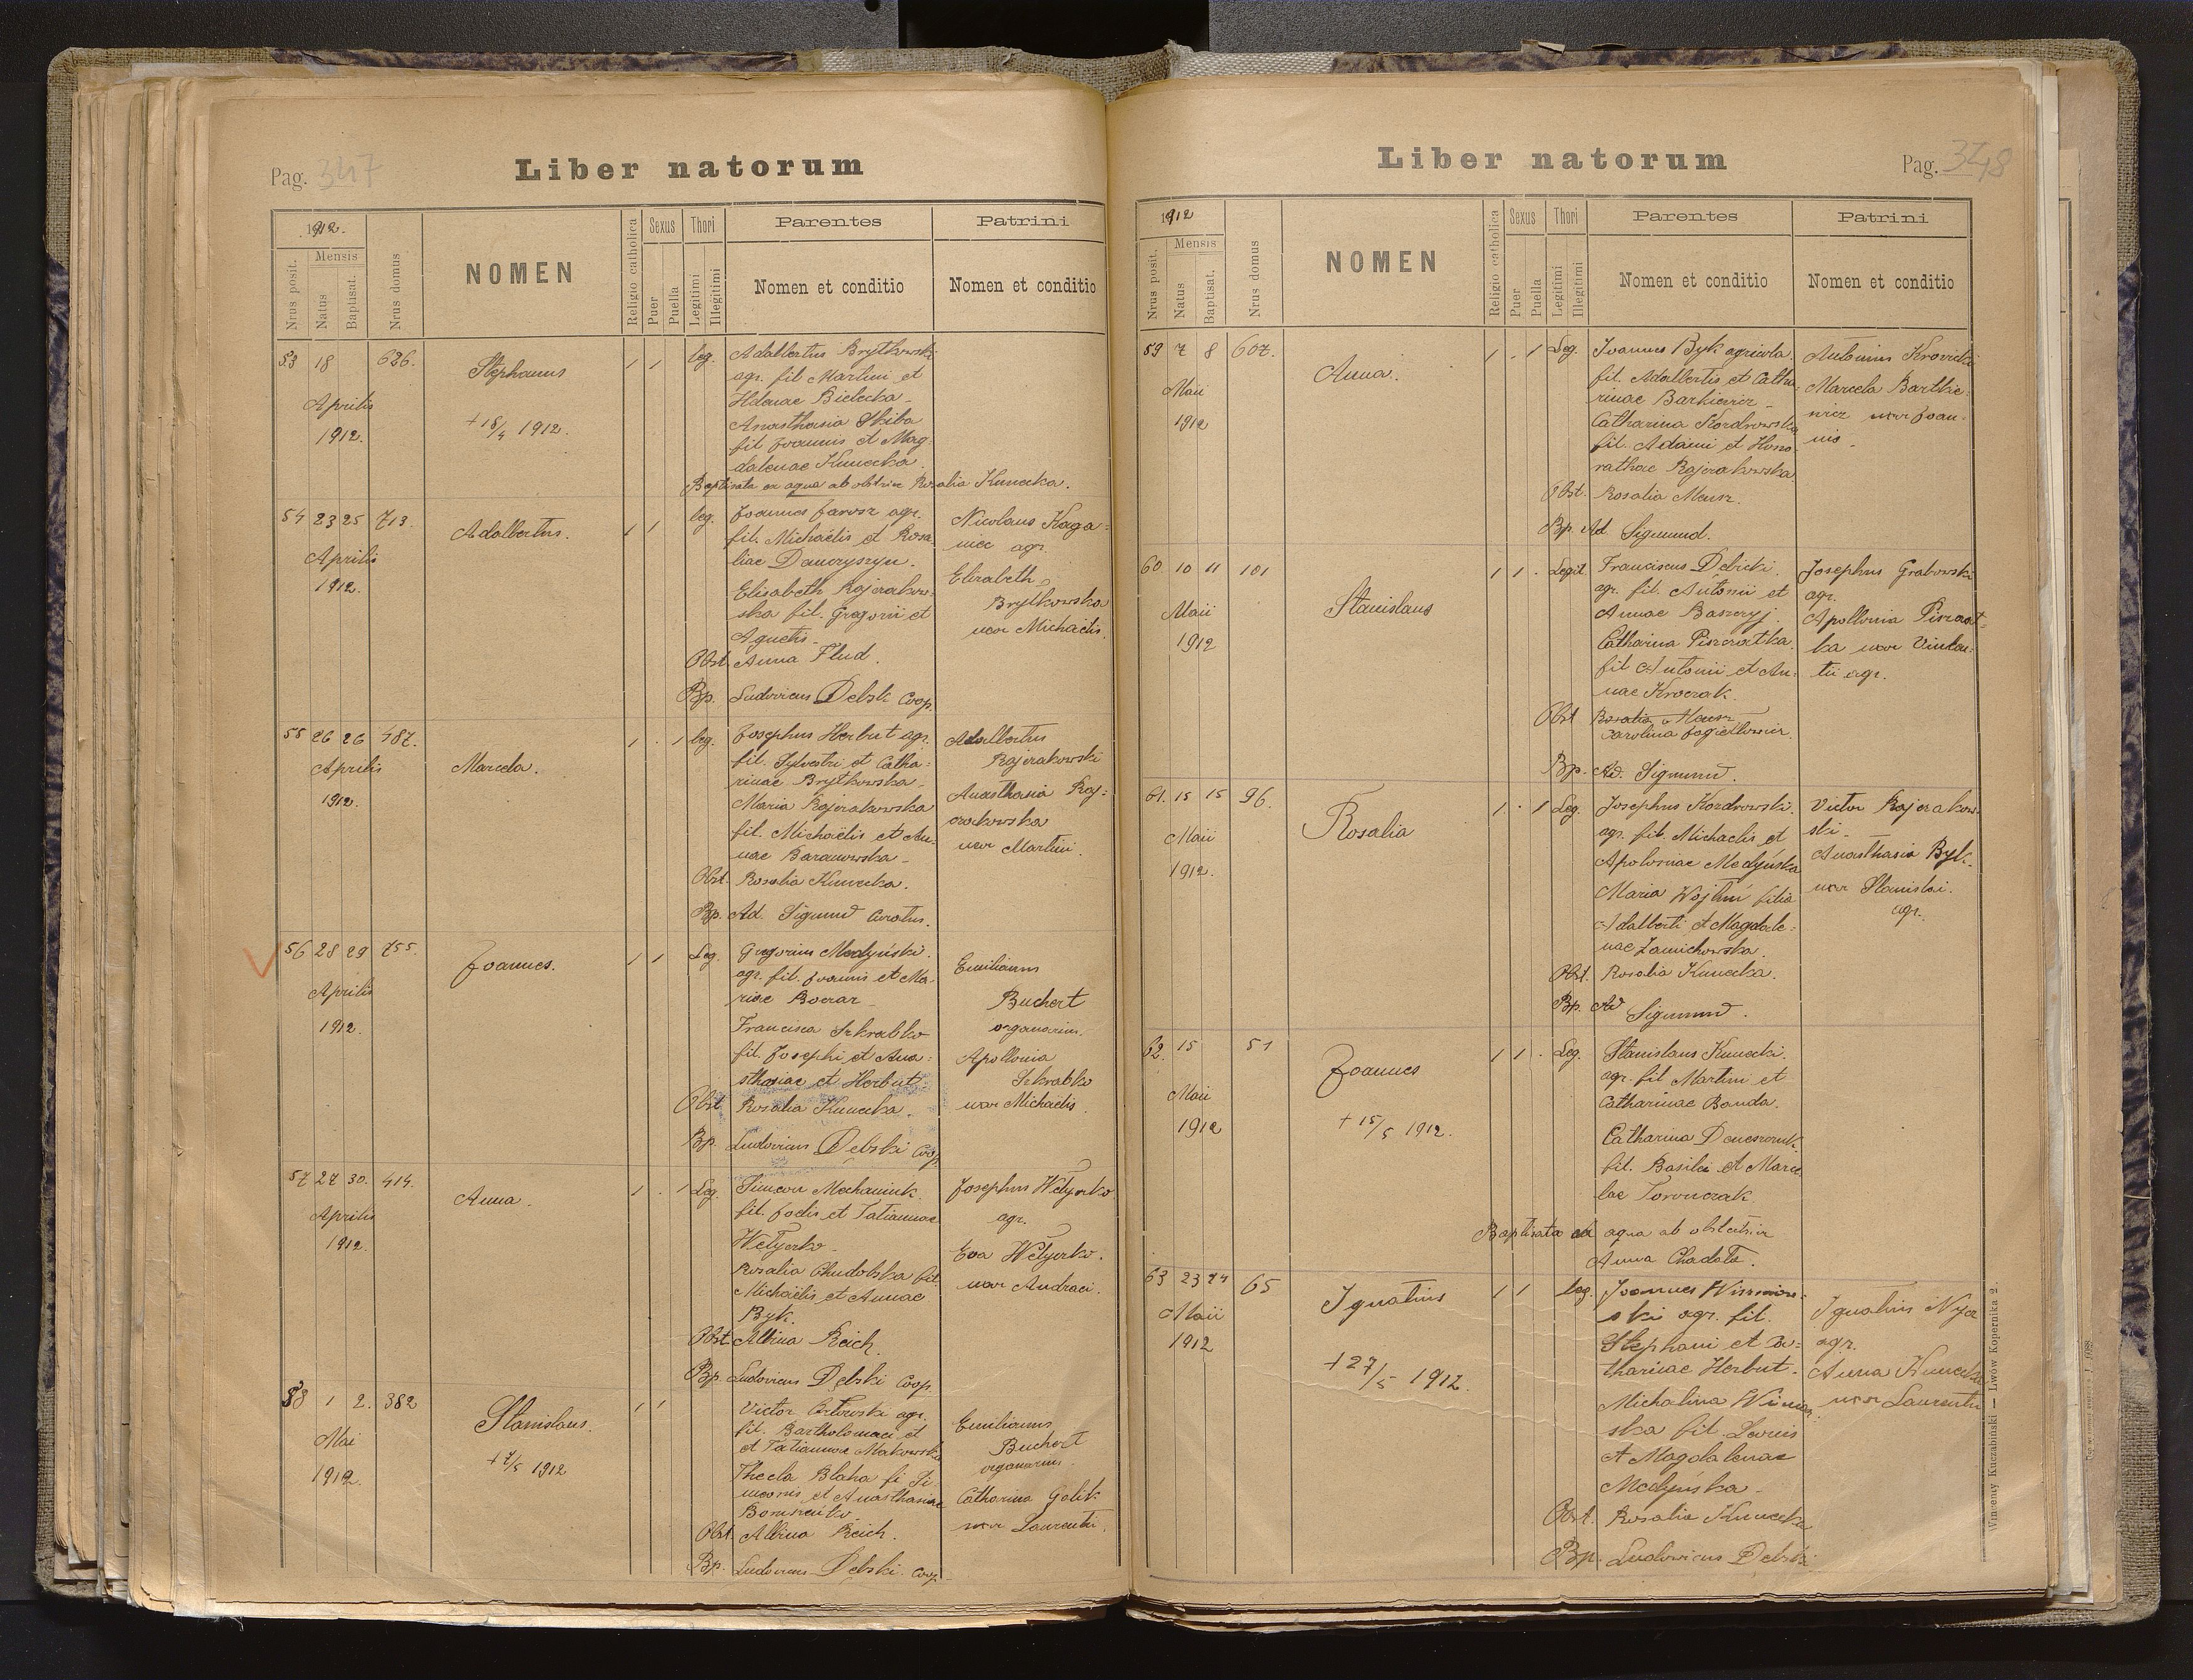 Pag. 347
Liber natorum
1912.
Nrus posit.
Mensis
Natus
Baptisat.
Nrus domus
NOMEN
Religio catholica
Sexus
Puer
Puella
Thori
Legitimi
Illegitimi
Parentes
Nomen et conditio
Patrini
Nomen et conditio
53 18 626.
Aprilis
1912.
Stephanus
+ 18/4 1912.
1 1 leg.
Adalbertus Brytkowski
agr. fil Martini et
Helenae Bielecka -
Anasthasia Skiba
fil Joannis et Mag
dalenae Kunecka.
Baptisata ex aqua ab obstetrice Rosalia Kunecka.
54 23 25 713.
Aprilis
1912.
Adalbertus.
1 1 leg.
Joannes Jarosz agr.
fil. Michaelis et Rosa
liae Dawryszyn.
Elisabeth Rajzakow-
ska fil. Gregorii et
Agnetis -
Obst. Anna Flud.
Bp. Ludovicus Debski Coop.
Nicolaus Haga=
niec agr.
Elizabeth
Brytkowska
uxor Michaelis.
55 26 26 487.
Aprilis
1912.
Marcela.
1 . 1 leg.
Josephus Herbut agr.
fil. Sylvestri et Catha=
rinae Brytkowska -
Maria Rajzakowska
fil. Michaelis et An=
nae Baranowska -
Obst. Rosalia Kunecka.
Bp. Ad. Sigmund Curatus.
Adalbertus
Rajzakowski
Anasthasia Raj=
zakowska
uxor Martini.
56 28 29 755.
Aprilis
1912.
Joannes.
1 1 Leg.
Gregorius Medyński.
agr. fil. Joannis et Ma-
riae Boczar -
Francisca Szkrabko
fil. Josephi et Ana=
sthasiae et Herbut.
Obst Rosalia Kunecka.
Bp. Ludovicus Debski Coop.
Emilianus
Buchert
organarius.
Apollonia
Szkrabko
uxor Michaelis.
57 27 30. 414.
Aprilis
1912.
Anna.
1 . 1 Leg.
Simeon Mechaniuk
fil. Jodis et Tatiannae
Wetyczko -
Rosalia Chudolska fil.
Michaelis et Annae
Byk.
Obst. Albina Reich.
Bp. Ludovicus Dębski Coop.
Josephus Wetyczko
agr.
Eva Wetyczko.
uxor Andraei.
58 1 2. 382
Mai
1912.
Stanislaus.
+ 7/5 1912
1 1
Victor agr.
fil. Bartholomaei et
et Tatiannae Makowska
Thecla Blaha fi Si-
meonis et Anasthasiae
Obst. Albina Reich.
Bp. Ludovicus Debski. Coop
Emilianus
Buchert
organarius.
Catharina Golik
uxor Laurentii.
Liber natorum
Pag. 348
1912
Nrus posit.
Mensis
Natus
Baptisat.
Nrus domus
NOMEN
Religio catholica
Sexus
Puer
Puella
Thori
Legitimi
Illegitimi
Parentes
Nomen et conditio
Patrini
Nomen et conditio
59 7 8 607.
Maii
1912
Anna.
1 . 1 Leg.
Joannes Byk agricola
fil. Adalbertis et Catha-
rinae Barkiewicz -
Catharina Kozdrowska
fil. Adami et Hono
rathae Rajzakowska
Obst. Rosalia Mensz.
Bp. Ad Sigmund.
Antonius Krovicki
Marcela Bartkie-
wicz uxor Joan-
nis -
60 10 11 101
Maii
1912
Stanislaus
1 1 . Legit
Franciscus Debicki.
agr. fil. Antonii et
Annae Baszczyj.
Catharina Piszczatka.
fil Antonii et An-
nae Kroczak.
Obst Rosalia Mensz
Carolina Jogiełłowicz.
Bp. Ad. Sigmund.
Josephus Grabowski
agr.
Apollonia Piszczat-
ka uxor Vincen-
tii agr.
61. 15 15 96.
Maii
1912.
Rosalia
1. . 1 Leg.
Josephus Kozdrowski.
agr. fil. Michaelis et
Apoloniae Medyńska
Maria Wojtuń filia
Adalberti et Magdale=
nae Zamichowska.
Obst. Rosalia Kunecka.
Bp. Ad Sigmund.
Victor Rajzakow-
ski -
Anasthasia Byk.
uxor Stanislai.
agr.
62. 15 51
Maii
1912
Joannes
+ 15/5 1912.
1 1 . Leg.
Stanislaus Kunecki.
agr. fil Martini et
Catharinae Banda.
Catharina Deneszczuk
fil. Basilii et Marce
lae Toronczak
Baptisata ex aqua ab obstetrice
Anna Chadata.
63 23 24 65
Maii
1912
Ignatius
+ 27/5 1912.
1 1 leg.
Joannes Wiszniow-
ski agr. fil.
Stephani et Ca=
tharinae Herbut.
Michalina
ska fil. Louis
et Magdalenae
Medyńska -
Obst. Rosalia Kunecka
Bp. Ludowicus Debski
Ignatius Nycz
agr.
Anna Kunecka
uxor Laurentii
Wincenty Kuczabiński — Lwów Kopernika 2.